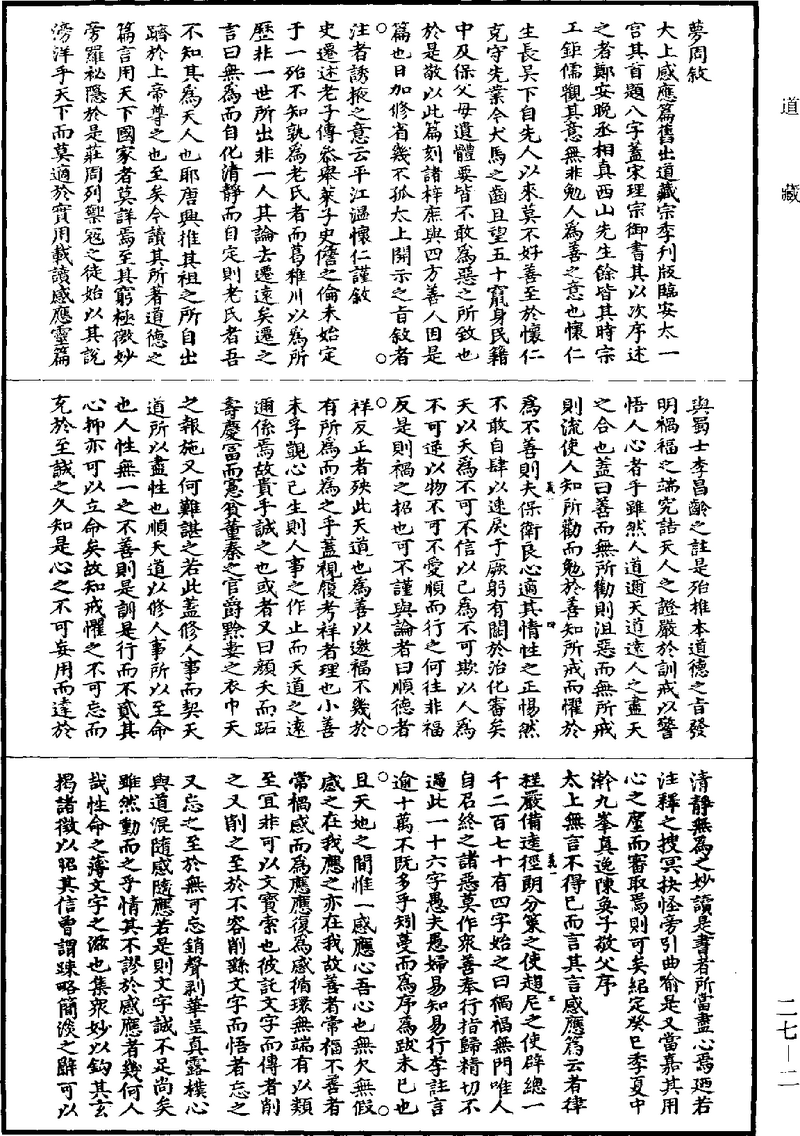 道藏
夢周敘
大上感應篇舊出道藏宗李刋版臨安太一
宫其首題八字蓋宋理宗御書其以次序述
之者鄭安晩丞相真西山先生餘皆其時宗
工鉅儒觀其意無非勉人為善之意也懷仁
生長吴下自先人以來莫不好善至於懷仁
克守先業今犬馬之齒且望五十竄身民籍
中及保父母遺體要皆不敢為惡之所致也
於是敬以此篇刻諸梓庶與四方善人因是
篇也日加修省幾不孤太上開示之旨敘者
注者誘掖之意云平江温懷仁謹敘
史遷述老子傳叅舉萊子史儋之倫未始定
于一殆不知孰為老氏者而葛稚川以為所
歷非一世所出非一人其論去遷遠矣遷之
言曰無為而自化清静而自定則老氏者吾
不知其為天人也耶唐興推其祖之所自出
躋於上帝尊之也至矣今讀其所著道德之
篇言用天下國家者莫詳焉至其窮極微妙
旁羅祕隱於是莊周列禦寇之徒始以其說
滂洋乎天下而莫適於實用載讀感應靈篇
與蜀士李昌齡之註是殆推本道德之旨發
明禍福之端究詰天人之證嚴於訓戒以警
悟人心者乎雖然人道邇天道遠人之盡天
之合也蓋曰善而無所勸則沮惡而無所戒
則流使人知所勸而勉於善知所戒而懼於
為不善則夫保衛良心適其情性之正惕然
不敢自肆以速戾于厥躬有關於治化審矣
天以天為不可不信以己為不可欺以人為
不可迷以物不可不愛順而行之何往非福
反是則禍之招也可不謹與論者曰順德者
祥反正者殃此天道也為善以邀福不幾於
有所為而為之乎蓋視履考祥者理也小善
未孚觀心己生則人事之作止而天道之遠
邇係焉故貴乎誠之也或者又曰顔夭而跖
壽慶富而憲貧董秦之官爵黔婁之衣巾天
之報施又何難諶之若此蓋修人事而契天
道所以盡性也順天道以修人事所以至命
也人性無一之不善則是訓是行而不貳其
心抑亦可以立命矣故知戒懼之不可忘而
充於至誠之久知是心之不可妄用而達於
清静無為之妙讀是書者所當盡心焉迺若
注釋之搜冥抉怪旁引曲喻是又當嘉其用
心之廑而審取焉則可矣紹定癸巳季夏中
澣九峯真逸陳奐子敬父序
太上無言不得已而言其言感應為云者律
程嚴備逵徑朗分策之使趨尼之使辟總一
千二百七十有四字始之曰禍福無門唯人
自召終之諸惡莫作衆善奉行指歸精切不
過此一十六字愚夫愚婦易知易行李註言
逾十萬不既多乎矧蔓而為序為跋未已也
且天地之間惟一感應心吾心也無欠無假
感之在我應之亦在我故善者常福不善者
常禍感而為應應復為感循環無端有以類
至宜非可以文實索也彼託文字而傳者削
之又削之至於不容削繇文字而悟者忘之
又忘之至於無可忘銷聲剥華呈真露樸心
與道混隨感隨應若是則文字誠不足尚矣
雖然動而之乎情其不謬於感應者幾何人
哉性命之薄文字之滋也集衆妙以鈎其玄
揭諸徵以昭其信曾謂踈略簡淡之辭可以
二七—二